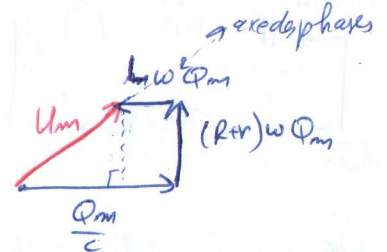 axe des phases
Lω²Qm
Um
(R+r)ωQm
Qm
c